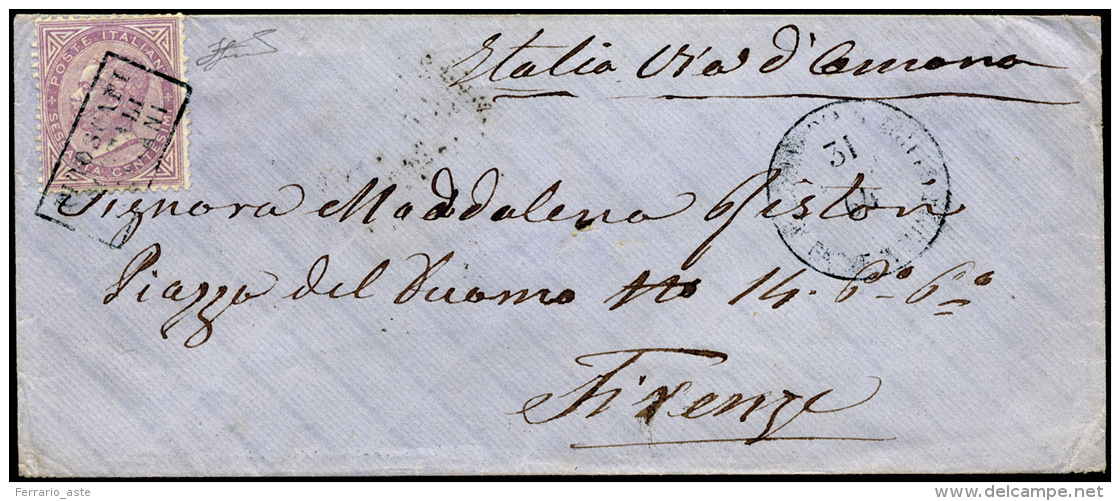 Italia Via d'Ancona
POSTE ITALIANE
SESSANTA CENTESIMI
PIROSCAFI
ANI
31
Signora Maddalena Piston
Piazza del Duomo No 14. 6º 6º
Firenze
Ferrario_aste
delcampe.net